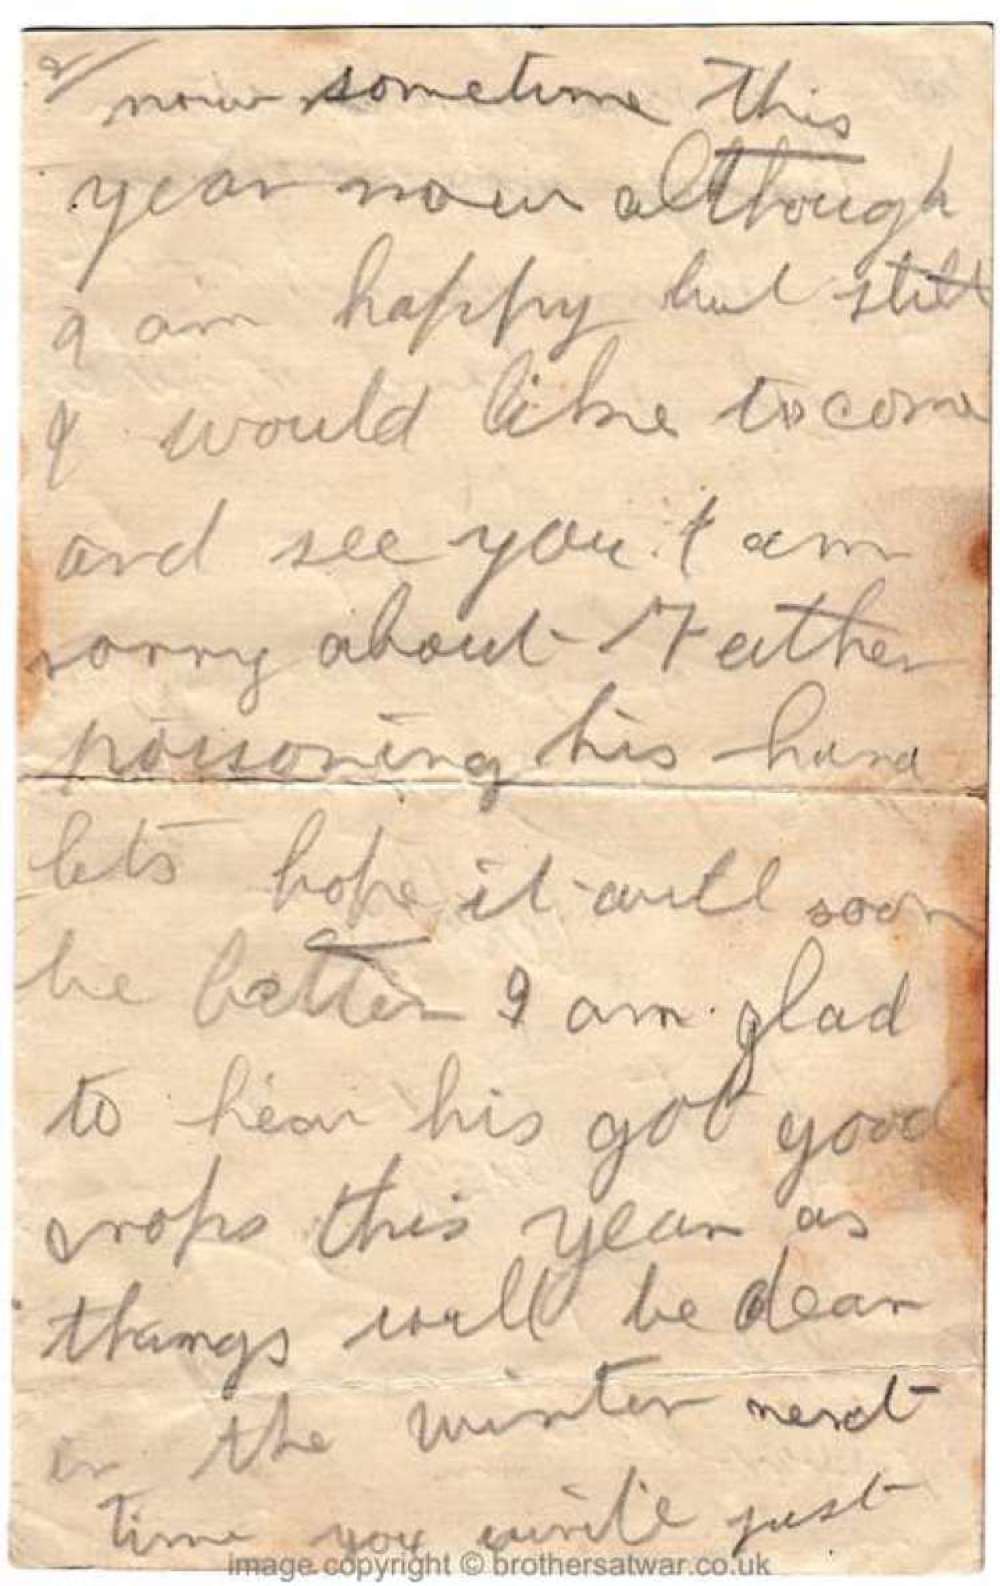 2/
now sometime this
year now although
I am happy but still
I would like to come
and see you. I am
sorry about Father
poisoning his hand
lets hope it will soon
be better I am glad
to hear his got good
crops this year as
things will be dear
in the winter next
time you write just
image copyright © brothersatwar.co.uk